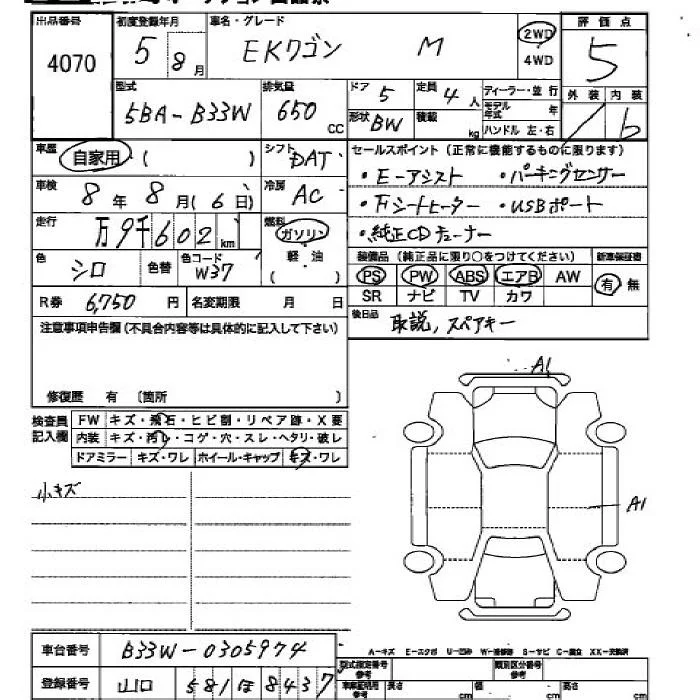 出品番号 初度登録年月 車名・グレード 評価点
4070 5 8月 EKワゴン M 2WD 5
4WD
型式 排気量 ドア 5 定員 4人 ディーラー・並行 外装 内装
5BA-B33W 650cc 形状 BW 積載 kg モデル年式 年 b
ハンドル 左・右
車歴 自家用・( ) シフト DAT セールスポイント(正常に機能するものに限ります)
車検 8年8月(6日) 冷房 AC ・E-アシスト ・パーキングセンサー
走行 万9千602km 燃料 ガソリン ・シートヒーター ・USBポート
軽・油 ・純正CDチューナー
色 シロ 色替 色コード W37 ( ) 装備品(純正品に限り○をつけてください) 新車保証書
PS PW ABS エアB AW 有 無
R券 6,750円 名変期限 月 日 SR ナビ TV カワ
注意事項申告欄(不具合内容等は具体的に記入して下さい) 後日品 取説,スペアキー
修復歴 有 〔箇所 〕
A1
検査員記入欄 FW キズ・飛石・ヒビ割・リペア跡・X要
内装 キズ・汚レ・コゲ・穴・スレ・ヘタリ・破レ
ドアミラー キズ・ワレ ホイール・キャップ キズ・ワレ
小キズ
A1
車台番号 B33W-0305974
A-キズ E-エクボ U-凹み W-補修跡 S-サビ C-腐食 XX-交換済
登録番号 山口 581 ほ 8437
型式指定番号 参考 類別区分番号 参考
車庫証明用 参考 長さ cm 幅 cm 高さ cm